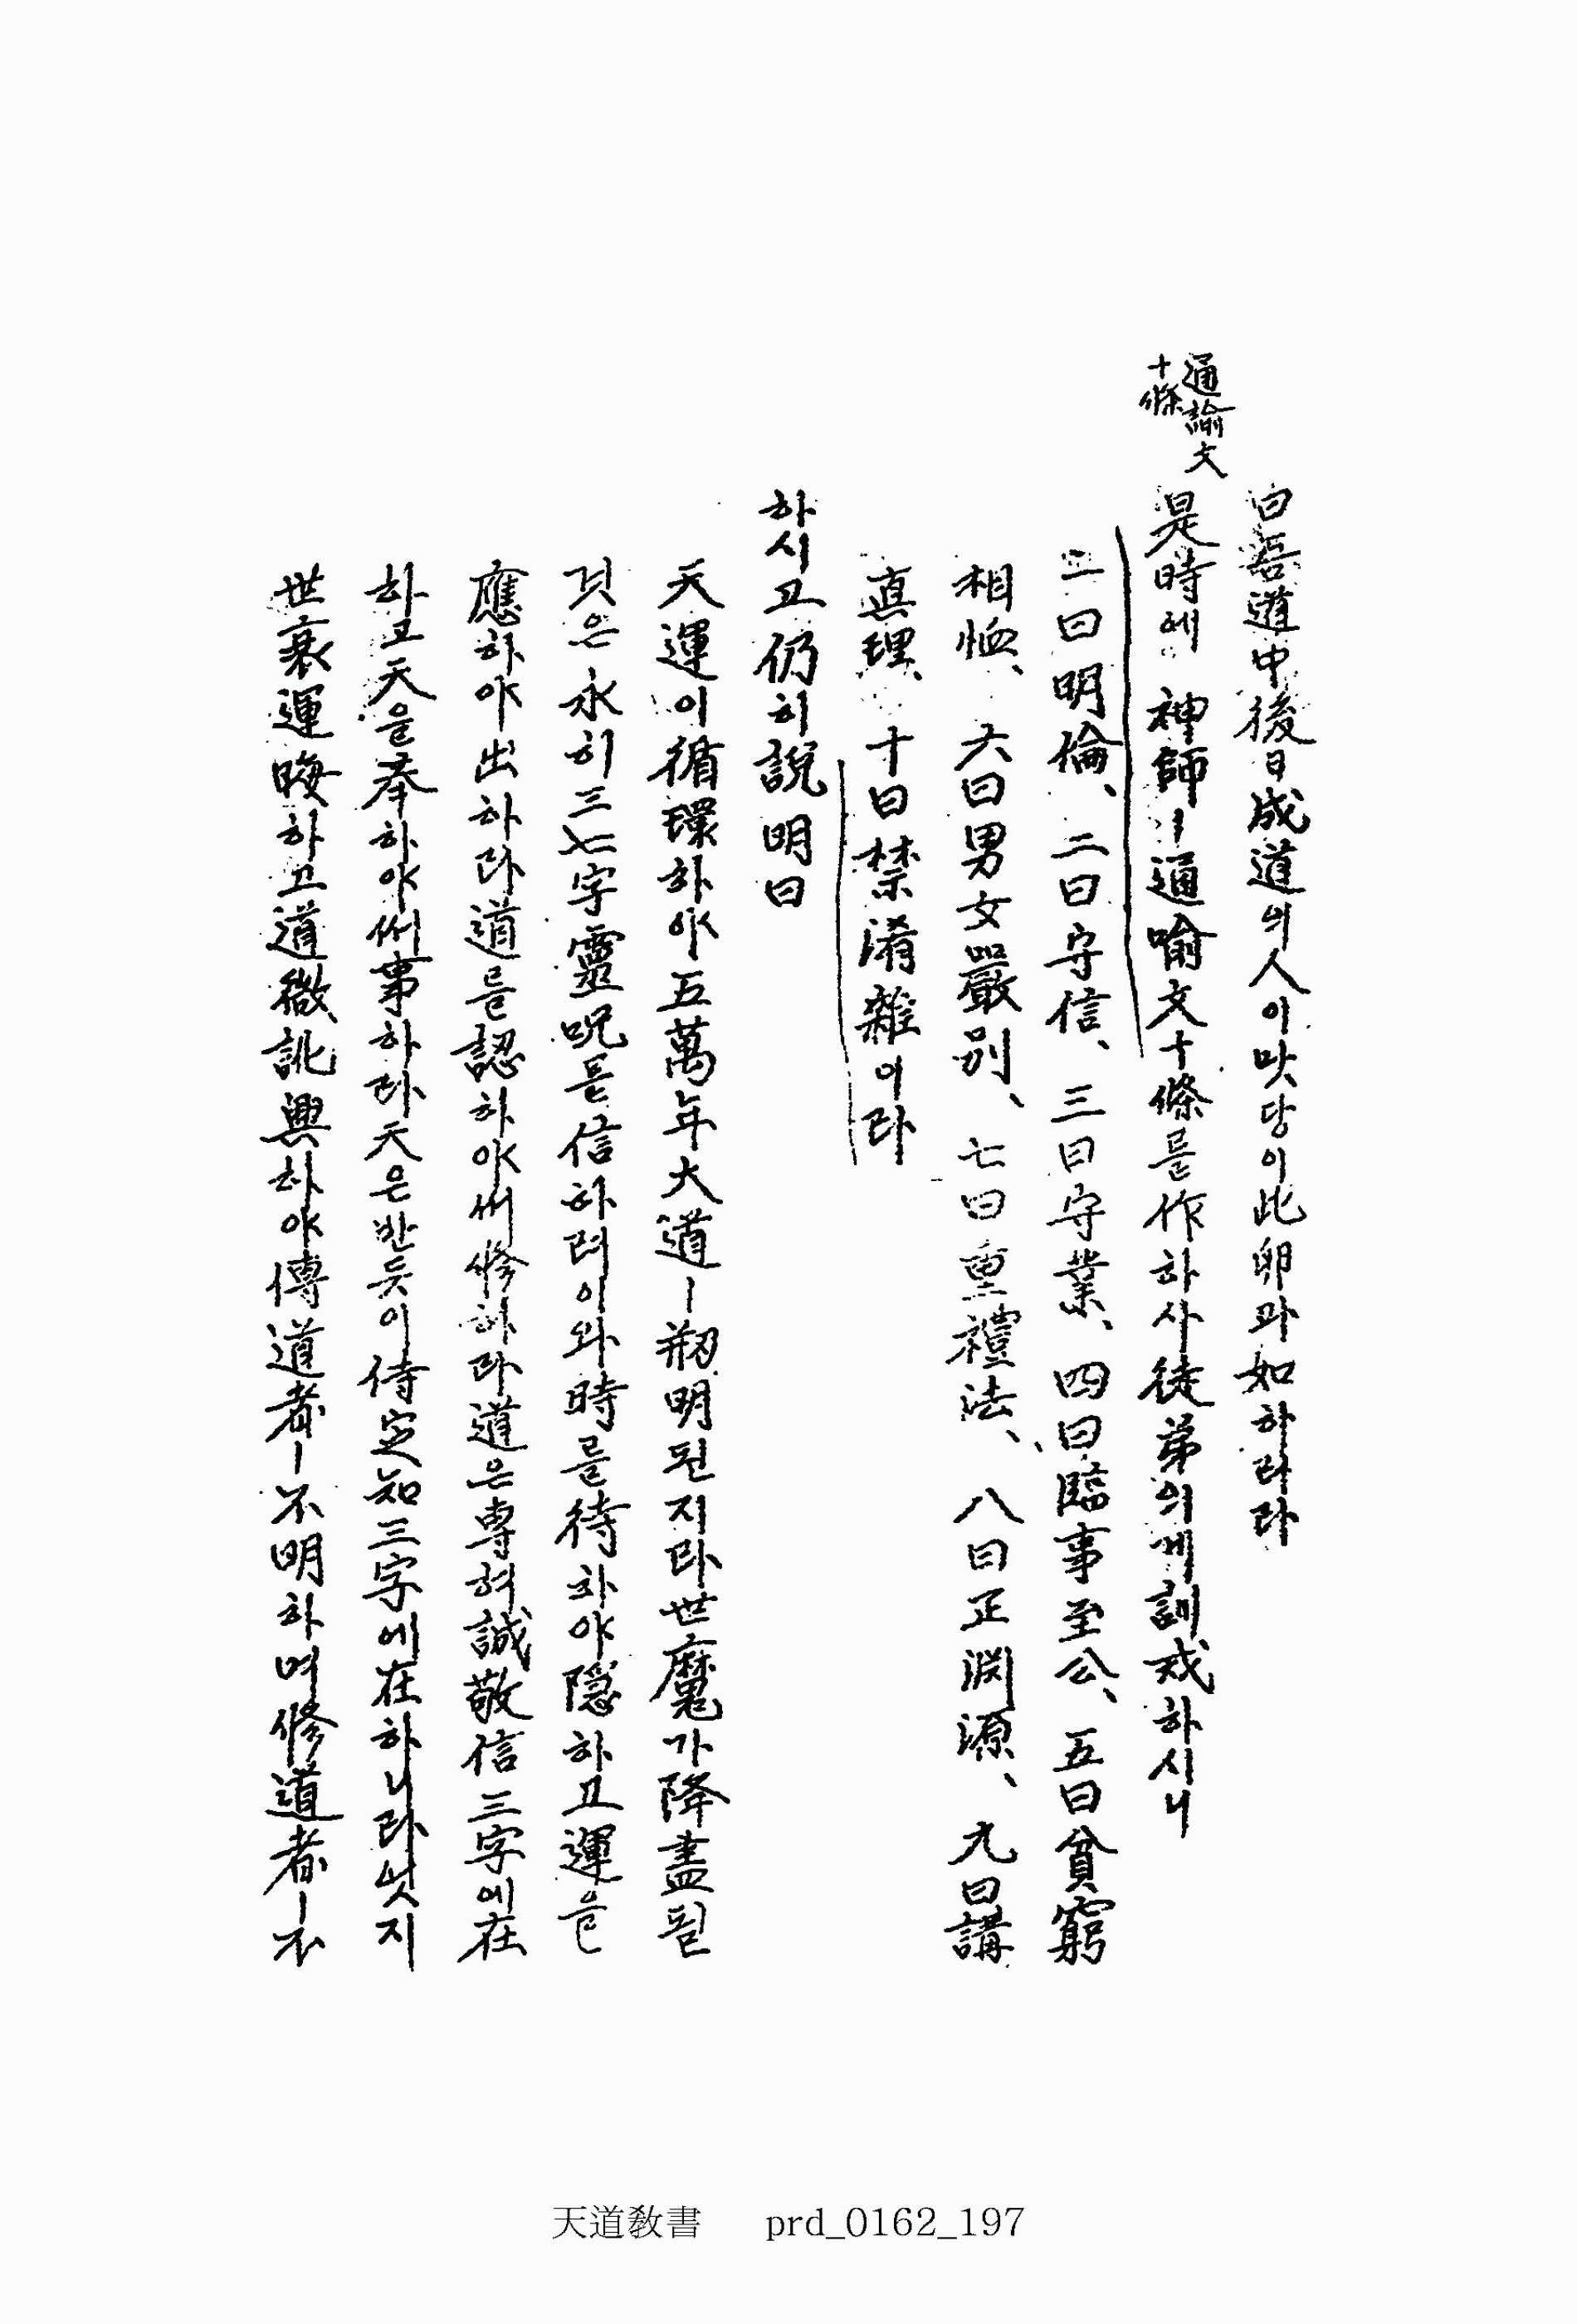 曰吾道中後日成道의人이맛당이此卵과如하리라
通諭文
十條
是時에 神師ㅣ通喩文十條를作하사徒弟의게訓戒하시니
一曰明倫、二曰守信、三曰守業、四曰臨事至公、五曰貧窮
相恤、六曰男女嚴別、七曰重禮法、八曰正淵源、九曰講
眞理、十曰禁淆雜이라
하시고仍히說明曰
天運이循環하야五萬年大道ㅣ刱明된지라世魔가降盡될
것은永히三七字靈呪를信하려이와時를待하야隱하고運을
應하야出하라道를認하야써修하라道은專혀誠敬信三字에在
하고天을奉하야써事하라天은반듯이侍定知三字에在하니라넷지
世衰運晦하고道微訛興하야傳道者ㅣ不明하며修道者ㅣ不
天道敎書 prd_0162_197